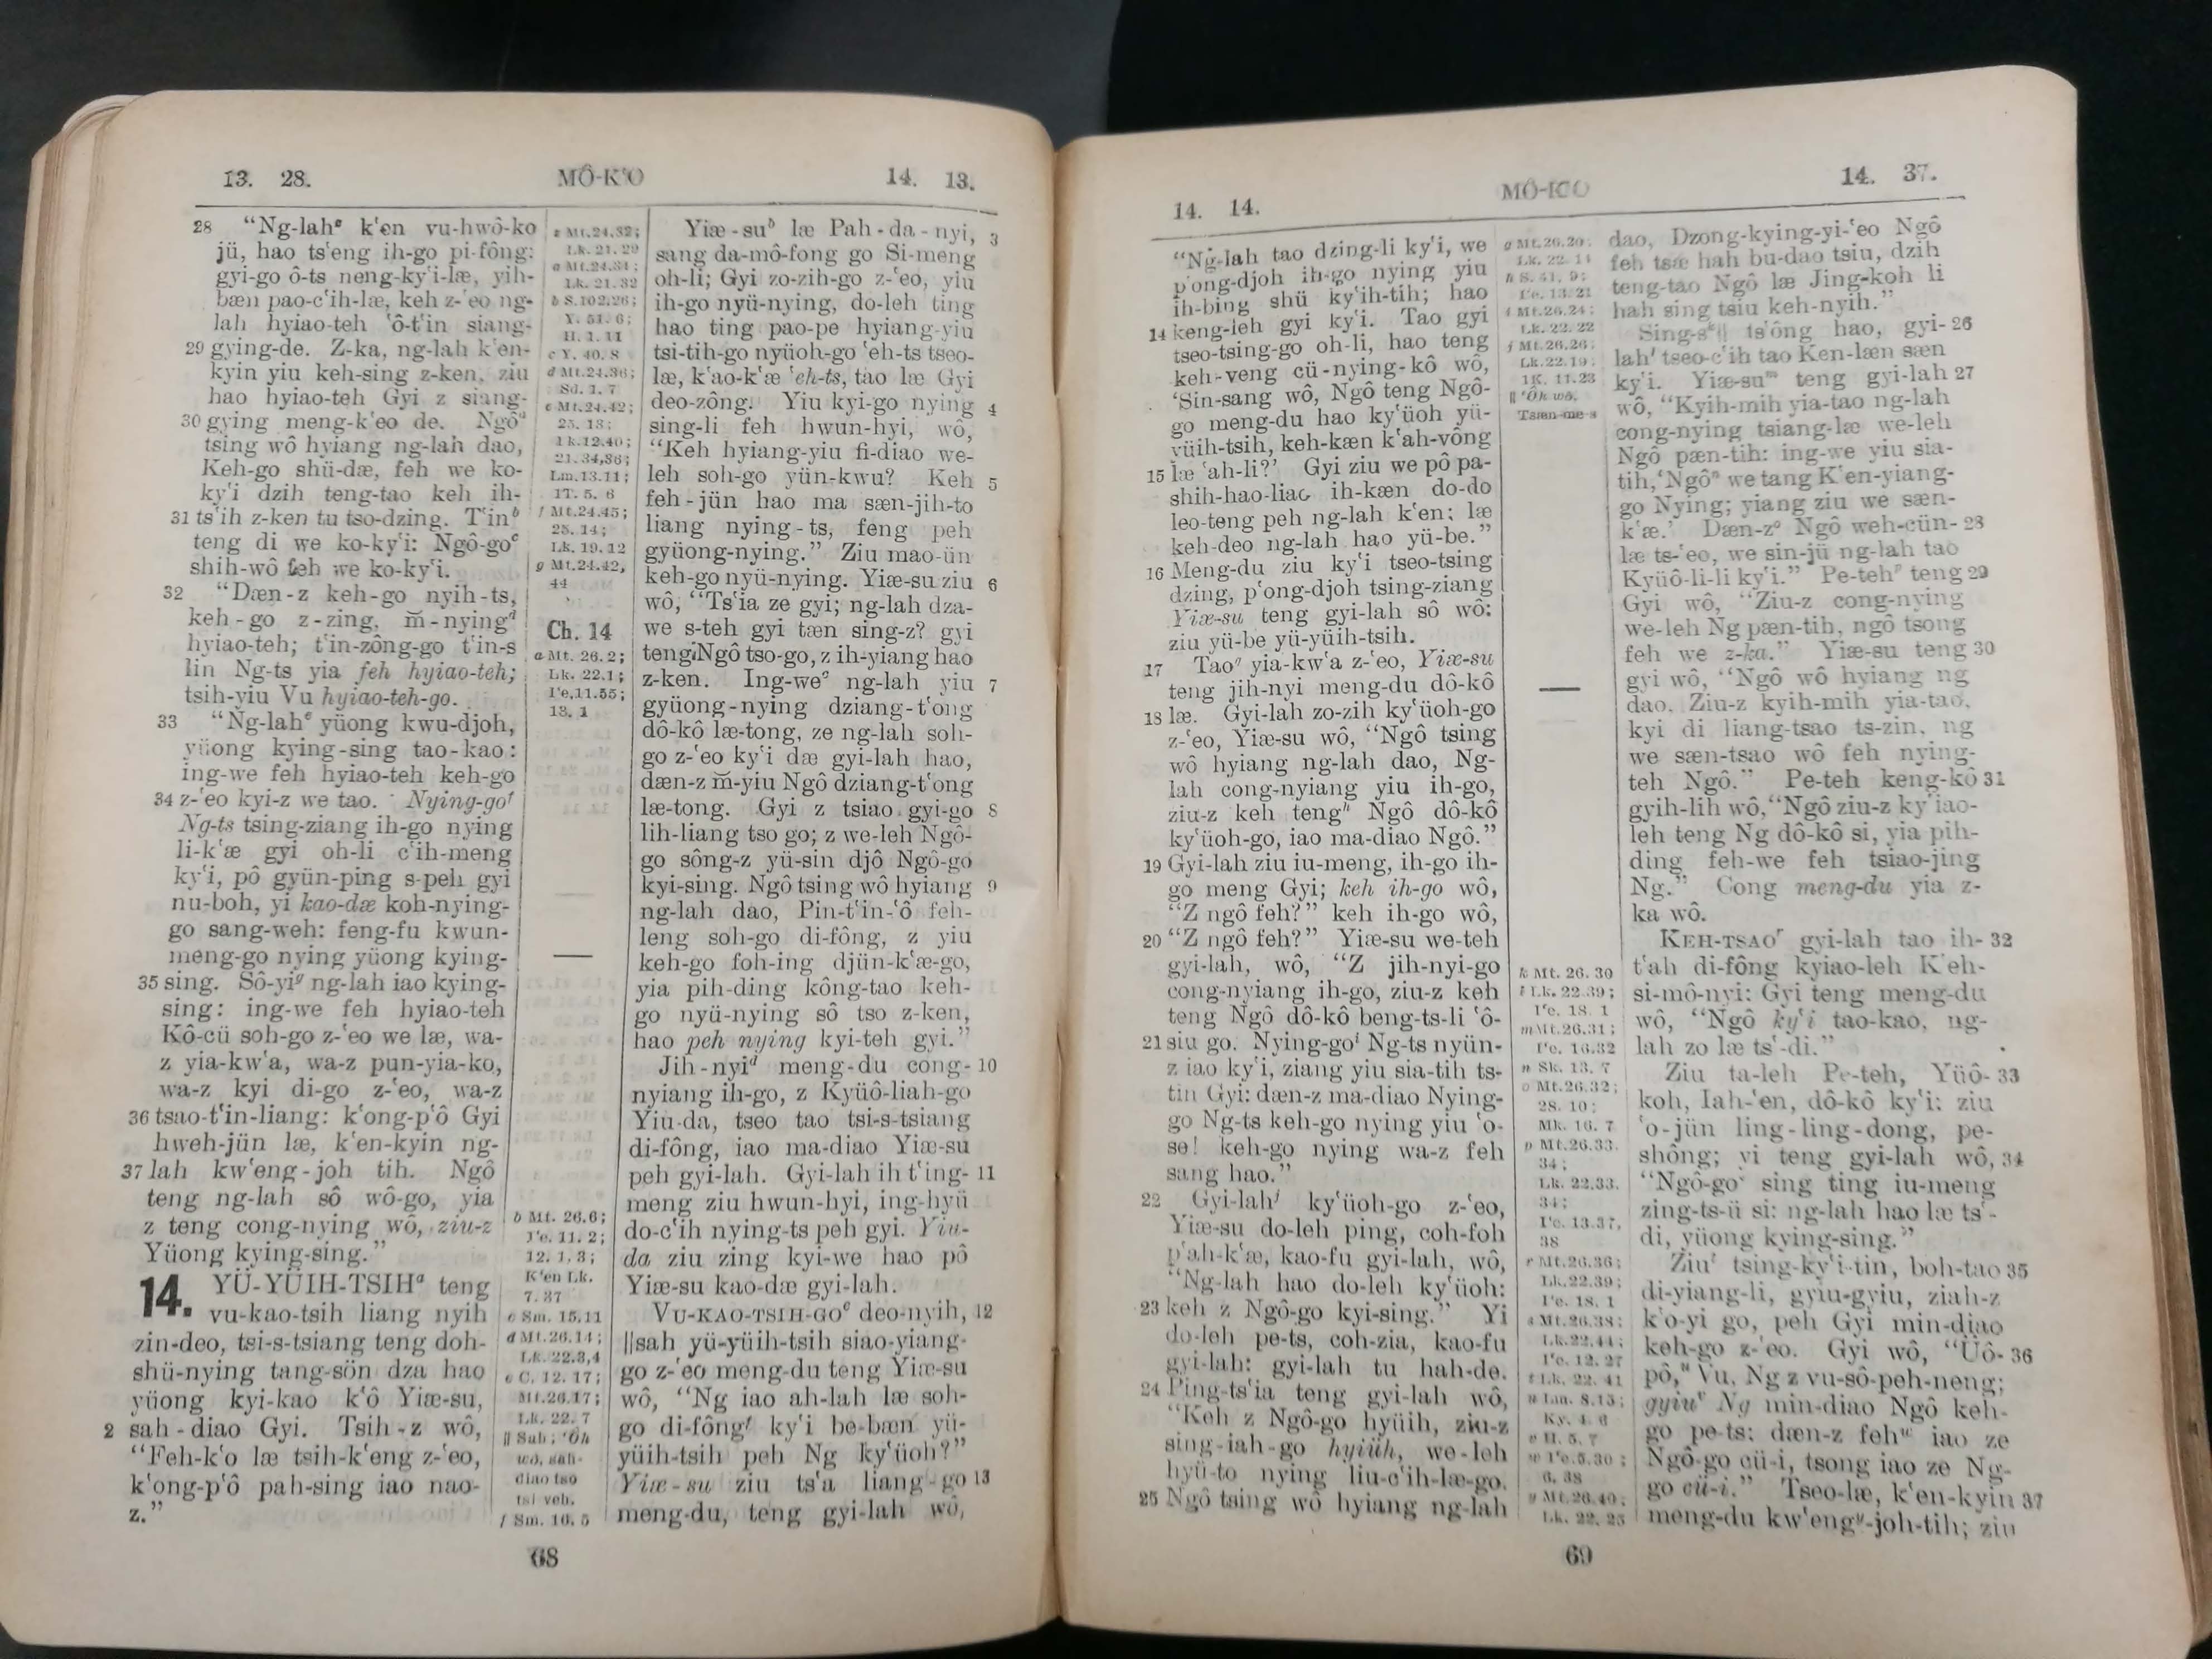 13. 28.
MÔ-K‘O
14. 13.
28 “Ng-lahᶻ k‘en vu-hwô-ko
jü, hao ts‘eng ih-go pi-fông:
gyi-go ô-ts neng-ky‘i-læ, yih-
bæn pao-c‘ih-læ, keh z-‘eo ng-
lah hyiao-teh ‘ô-t‘in siang-
29 gying-de. Z-ka, ng-lah k‘en-
kyin yiu keh-sing z-ken, ziu
hao hyiao-teh Gyi z siang-
30 gying meng-k‘eo de. Ngôᵃ
tsing wô hyiang ng-lah dao,
Keh-go shü-dæ, feh we ko-
ky‘i dzih teng-tao keh ih-
31 ts‘ih z-ken tu tso-dzing. T‘inᵇ
teng di we ko-ky‘i: Ngô-goᶜ
shih-wô feh we ko-ky‘i.
32 “Dæn-z keh-go nyih-ts,
keh-go z-zing, m̆-nyingᵈ
hyiao-teh; t‘in-zông-go t‘in-s
lin Ng-ts yia feh hyiao-teh;
tsih-yiu Vu hyiao-teh-go.
33 “Ng-lahᵉ yüong kwu-djoh,
yüong kying-sing tao-kao:
ing-we feh hyiao-teh keh-go
34 z-‘eo kyi-z we tao. Nying-goᶠ
Ng-ts tsing-ziang ih-go nying
li-k‘æ gyi oh-li c‘ih-meng
ky‘i, pô gyün-ping s-peh gyi
nu-boh, yi kao-dæ koh-nying-
go sang-weh: feng-fu kwun-
meng-go nying yüong kying-
35 sing. Sô-yiᵍ ng-lah iao kying-
sing: ing-we feh hyiao-teh
Kô-cü soh-go z-‘eo we læ, wa-
z yia-kw‘a, wa-z pun-yia-ko,
wa-z kyi di-go z-‘eo, wa-z
36 tsao-t‘in-liang: k‘ong-p‘ô Gyi
hweh-jün læ, k‘en-kyin ng-
37 lah kw‘eng-joh tih. Ngô
teng ng-lah sô wô-go, yia
z teng cong-nying wô, ziu-z
Yüong kying-sing.”
14. YÜ-YÜIH-TSIHᵃ teng
vu-kao-tsih liang nyih
zin-deo, tsi-s-tsiang teng doh-
shü-nying tang-sön dza hao
yüong kyi-kao k‘ô Yiæ-su,
2 sah-diao Gyi. Tsih-z wô,
“Feh-k‘o læ tsih-k‘eng z-‘eo,
k‘ong-p‘ô pah-sing iao nao-
z.”
z Mt.24.32;
Lk. 21. 29
a Mt.24.34;
Lk. 21. 32
b S.102.26;
Y. 51. 6;
H. 1. 11
c Y. 40. 8
d Mt.24.36;
Sd. 1. 7
e Mt.24.42;
25. 13;
Lk.12.40;
21.34,36;
Lm.13.11;
1T. 5. 6
f Mt.24.45;
25. 14;
Lk. 19. 12
g Mt.24.42,
44
Ch. 14
a Mt. 26. 2;
Lk. 22.1;
I‘e.11.55;
13. 1
b Mt. 26.6;
I‘e. 11. 2;
12. 1, 3;
K‘en Lk.
7. 37
c Sm. 15.11
d Mt.26.14;
Lk. 22.3,4
e C. 12. 17;
Mt.26.17;
Lk. 22. 7
|| Sah; ‘Ôh
wô, sah-
diao tso
tsi veh.
f Sm. 16. 5
Yiæ-suᵇ læ Pah-da-nyi, 3
sang da-mô-fong go Si-meng
oh-li; Gyi zo-zih-go z-‘eo, yiu
ih-go nyü-nying, do-leh ting
hao ting pao-pe hyiang-yiu
tsi-tih-go nyüoh-go ‘eh-ts tseo-
læ, k‘ao-k‘æ ‘eh-ts, tao læ Gyi
deo-zông. Yiu kyi-go nying 4
sing-li feh hwun-hyi, wô,
“Keh hyiang-yiu fi-diao we-
leh soh-go yün-kwu? Keh 5
feh-jün hao ma sæn-jih-to
liang nying-ts, feng peh
gyüong-nying.” Ziu mao-ün
keh-go nyü-nying. Yiæ-su ziu 6
wô, “Ts‘ia ze gyi; ng-lah dza-
we s-teh gyi tæn sing-z? gyi
teng Ngô tso-go, z ih-yiang hao
z-ken. Ing-weᶜ ng-lah yiu 7
gyüong-nying dziang-t‘ong
dô-kô læ-tong, ze ng-lah soh-
go z-‘eo ky‘i dæ gyi-lah hao,
dæn-z m̆-yiu Ngô dziang-t‘ong
læ-tong. Gyi z tsiao gyi-go 8
lih-liang tso go; z we-leh Ngô-
go sông-z yü-sin djô Ngô-go
kyi-sing. Ngô tsing wô hyiang 9
ng-lah dao, Pin-t‘in-‘ô feh-
leng soh-go di-fông, z yiu
keh-go foh-ing djün-k‘æ-go,
yia pih-ding kông-tao keh-
go nyü-nying sô tso z-ken,
hao peh nying kyi-teh gyi.”
Jih-nyiᵈ meng-du cong- 10
nyiang ih-go, z Kyüô-liah-go
Yiu-da, tseo tao tsi-s-tsiang
di-fông, iao ma-diao Yiæ-su
peh gyi-lah. Gyi-lah ih t‘ing- 11
meng ziu hwun-hyi, ing-hyü
do-c‘ih nying-ts peh gyi. Yiu-
da ziu zing kyi-we hao pô
Yiæ-su kao-dæ gyi-lah.
VU-KAO-TSIH-GOᵉ deo-nyih, 12
||sah yü-yüih-tsih siao-yiang-
go z-‘eo meng-du teng Yiæ-su
wô, “Ng iao ah-lah læ soh-
go di-fôngᶠ ky‘i be-bæn yü-
yüih-tsih peh Ng ky‘üoh?”
Yiæ-su ziu ts‘a liang-go 13
meng-du, teng gyi-lah wô,
68
14. 14.
MÔ-K‘O
14. 37.
“Ng-lah tao dzing-li ky‘i, we
p‘ong-djoh ih-go nying yiu
ih-bing shü ky‘ih-tih; hao
14 keng-leh gyi ky‘i. Tao gyi
tseo-tsing-go oh-li, hao teng
keh-veng cü-nying-kô wô,
‘Sin-sang wô, Ngô teng Ngô-
go meng-du hao ky‘üoh yü-
yüih-tsih, keh-kæn k‘ah-vông
15 læ ‘ah-li?’ Gyi ziu we pô pa-
shih-hao-liao ih-kæn do-do
leo-teng peh ng-lah k‘en; læ
keh-deo ng-lah hao yü-be.”
16 Meng-du ziu ky‘i tseo-tsing
dzing, p‘ong-djoh tsing-ziang
Yiæ-su teng gyi-lah sô wô:
ziu yü-be yü-yüih-tsih.
17 Taoᵍ yia-kw‘a z-‘eo, Yiæ-su
teng jih-nyi meng-du dô-kô
18 læ. Gyi-lah zo-zih ky‘üoh-go
z-‘eo, Yiæ-su wô, “Ngô tsing
wô hyiang ng-lah dao, Ng-
lah cong-nyiang yiu ih-go,
ziu-z keh tengʰ Ngô dô-kô
ky‘üoh-go, iao ma-diao Ngô.”
19 Gyi-lah ziu iu-meng, ih-go ih-
go meng Gyi; keh ih-go wô,
“Z ngô feh?” keh ih-go wô,
20 “Z ngô feh?” Yiæ-su we-teh
gyi-lah, wô, “Z jih-nyi-go
cong-nyiang ih-go, ziu-z keh
teng Ngô dô-kô beng-ts-li ‘ô-
21 siu go. Nying-goⁱ Ng-ts nyün-
z iao ky‘i, ziang yiu sia-tih ts-
tin Gyi: dæn-z ma-diao Nying-
go Ng-ts keh-go nying yiu ‘o-
se! keh-go nying wa-z feh
sang hao.”
22 Gyi-lahʲ ky‘üoh-go z-‘eo,
Yiæ-su do-leh ping, coh-foh
p‘ah-k‘æ, kao-fu gyi-lah, wô,
“Ng-lah hao do-leh ky‘üoh:
23 keh z Ngô-go kyi-sing.” Yi
do-leh pe-ts, coh-zia, kao-fu
gyi-lah: gyi-lah tu hah-de.
24 Ping-ts‘ia teng gyi-lah wô,
“Keh z Ngô-go hyüih, ziu-z
sing-iah-go hyüih, we-leh
hyü-to nying liu-c‘ih-læ-go.
25 Ngô tsing wô hyiang ng-lah
g Mt.26.20;
Lk. 22. 14
h S. 41. 9;
I‘e. 13. 21
i Mt.26.24;
Lk. 22. 22
j Mt.26.26;
Lk.22.19;
1K. 11.23
|| ‘Ôh wô,
k Mt. 26. 30
l Lk. 22.39;
I‘e. 18. 1
m Mt.26.31;
I‘e. 16.32
n Sk. 13. 7
o Mt.26.32;
28. 10;
Mk. 16. 7
p Mt.26.33.
34;
Lk. 22.33.
34;
I‘e. 13.37,
38
r Mt.26.36;
Lk.22.39;
I‘e. 18. 1
s Mt.26.38;
Lk.22.44;
I‘e. 12. 27
t Lk. 22. 41
u Lm. 8.15;
Ky. 4. 6
v H. 5. 7
w I‘e.5.30;
6. 38
y Mt.26.40;
Lk. 22. 25
dao, Dzong-kying-yi-‘eo Ngô
feh tsæ hah bu-dao tsiu, dzih
teng-tao Ngô læ Jing-koh li
hah sing tsiu keh-nyih.”
Sing-sᵏ|| ts‘ông hao, gyi- 26
lahˡ tseo-c‘ih tao Ken-læn sæn
ky‘i. Yiæ-suᵐ teng gyi-lah 27
wô, “Kyih-mih yia-tao ng-lah
cong-nying tsiang-læ we-leh
Ngô pæn-tih: ing-we yiu sia-
tih, ‘Ngôⁿ we tang K‘en-yiang-
go Nying; yiang ziu we sæn-
k‘æ.’ Dæn-zᵒ Ngô weh-cün- 28
læ ts-‘eo, we sin-jü ng-lah tao
Kyüô-li-li ky‘i.” Pe-tehᵖ teng 29
Gyi wô, “Ziu-z cong-nying
we-leh Ng pæn-tih, ngô tsong
feh we z-ka.” Yiæ-su teng 30
gyi wô, “Ngô wô hyiang ng
dao, Ziu-z kyih-mih yia-tao,
kyi di liang-tsao ts-zin, ng
we sæn-tsao wô feh nying-
teh Ngô.” Pe-teh keng-kô 31
gyih-lih wô, “Ngô ziu-z ky‘iao-
leh teng Ng dô-kô si, yia pih-
ding feh-we feh tsiao-jing
Ng.” Cong meng-du yia z-
ka wô.
KEH-TSAOʳ gyi-lah tao ih- 32
t‘ah di-fông kyiao-leh K‘eh-
si-mô-nyi: Gyi teng meng-du
wô, “Ngô ky‘i tao-kao, ng-
lah zo læ ts‘-di.”
Ziu ta-leh Pe-teh, Yüô- 33
koh, Iah-‘en, dô-kô ky‘i: ziu
‘o-jün ling-ling-dong, pe-
shông; yi teng gyi-lah wô, 34
“Ngô-goˢ sing ting iu-meng
zing-ts-ü si: ng-lah hao læ ts‘-
di, yüong kying-sing.”
Ziuᵗ tsing-ky‘i-tin, boh-tao 35
di-yiang-li, gyiu-gyiu, ziah-z
k‘o-yi go, peh Gyi min-diao
keh-go z-‘eo. Gyi wô, “Üô- 36
pô,ᵘ Vu, Ng z vu-sô-peh-neng;
gyiuᵛ Ng min-diao Ngô keh-
go pe-ts: dæn-z fehʷ iao ze
Ngô-go cü-i, tsong iao ze Ng-
go cü-i.” Tseo-læ, k‘en-kyin 37
meng-du kw‘engʸ-joh-tih; ziu
69